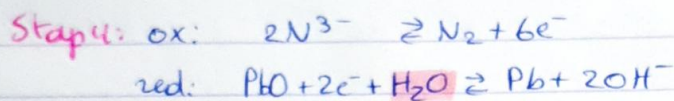 Stap 4: ox: 2N³⁻ ⇄ N₂ + 6e⁻
red: PbO + 2e⁻ + H₂O ⇄ Pb + 2OH⁻